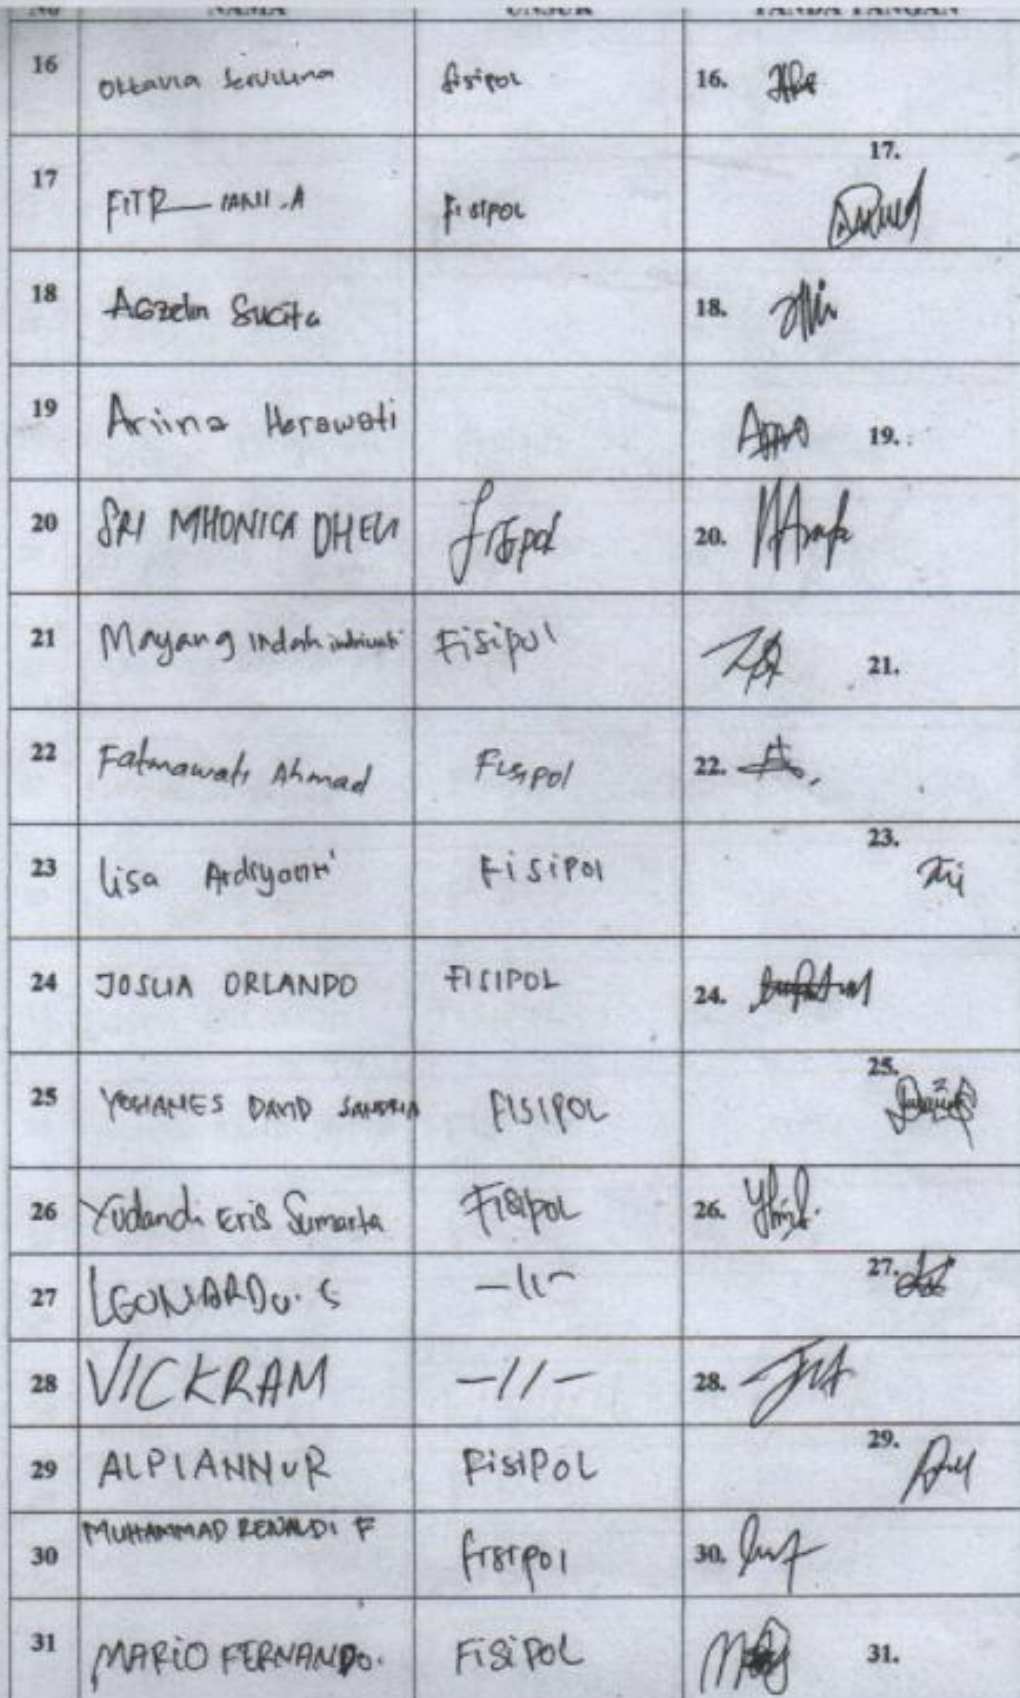 NO NAMA UNSUR TANDA TANGAN
16 Oktavia Servilina fisipol 16.
17 FITR IANI . A Fisipol 17.
18 Agzelin Sucita 18.
19 Ariina Herawati 19.
20 SRI MHONICA DHEVI fisipol 20.
21 Mayang indah indriwati Fisipol 21.
22 Fatmawati Ahmad Fisipol 22.
23 Lisa Ardiyanti Fisipol 23.
24 JOSUA ORLANDO FISIPOL 24.
25 YOHANES DAVID SANDRIA FISIPOL 25.
26 Yudandi Eris Sumarta Fisipol 26.
27 LEONARDO. S —11— 27.
28 VICKRAM —//— 28.
29 ALPIANNUR FisiPOL 29.
30 MUHAMMAD RENALDI F fisipol 30.
31 MARIO FERNANDO. FISIPOL 31.